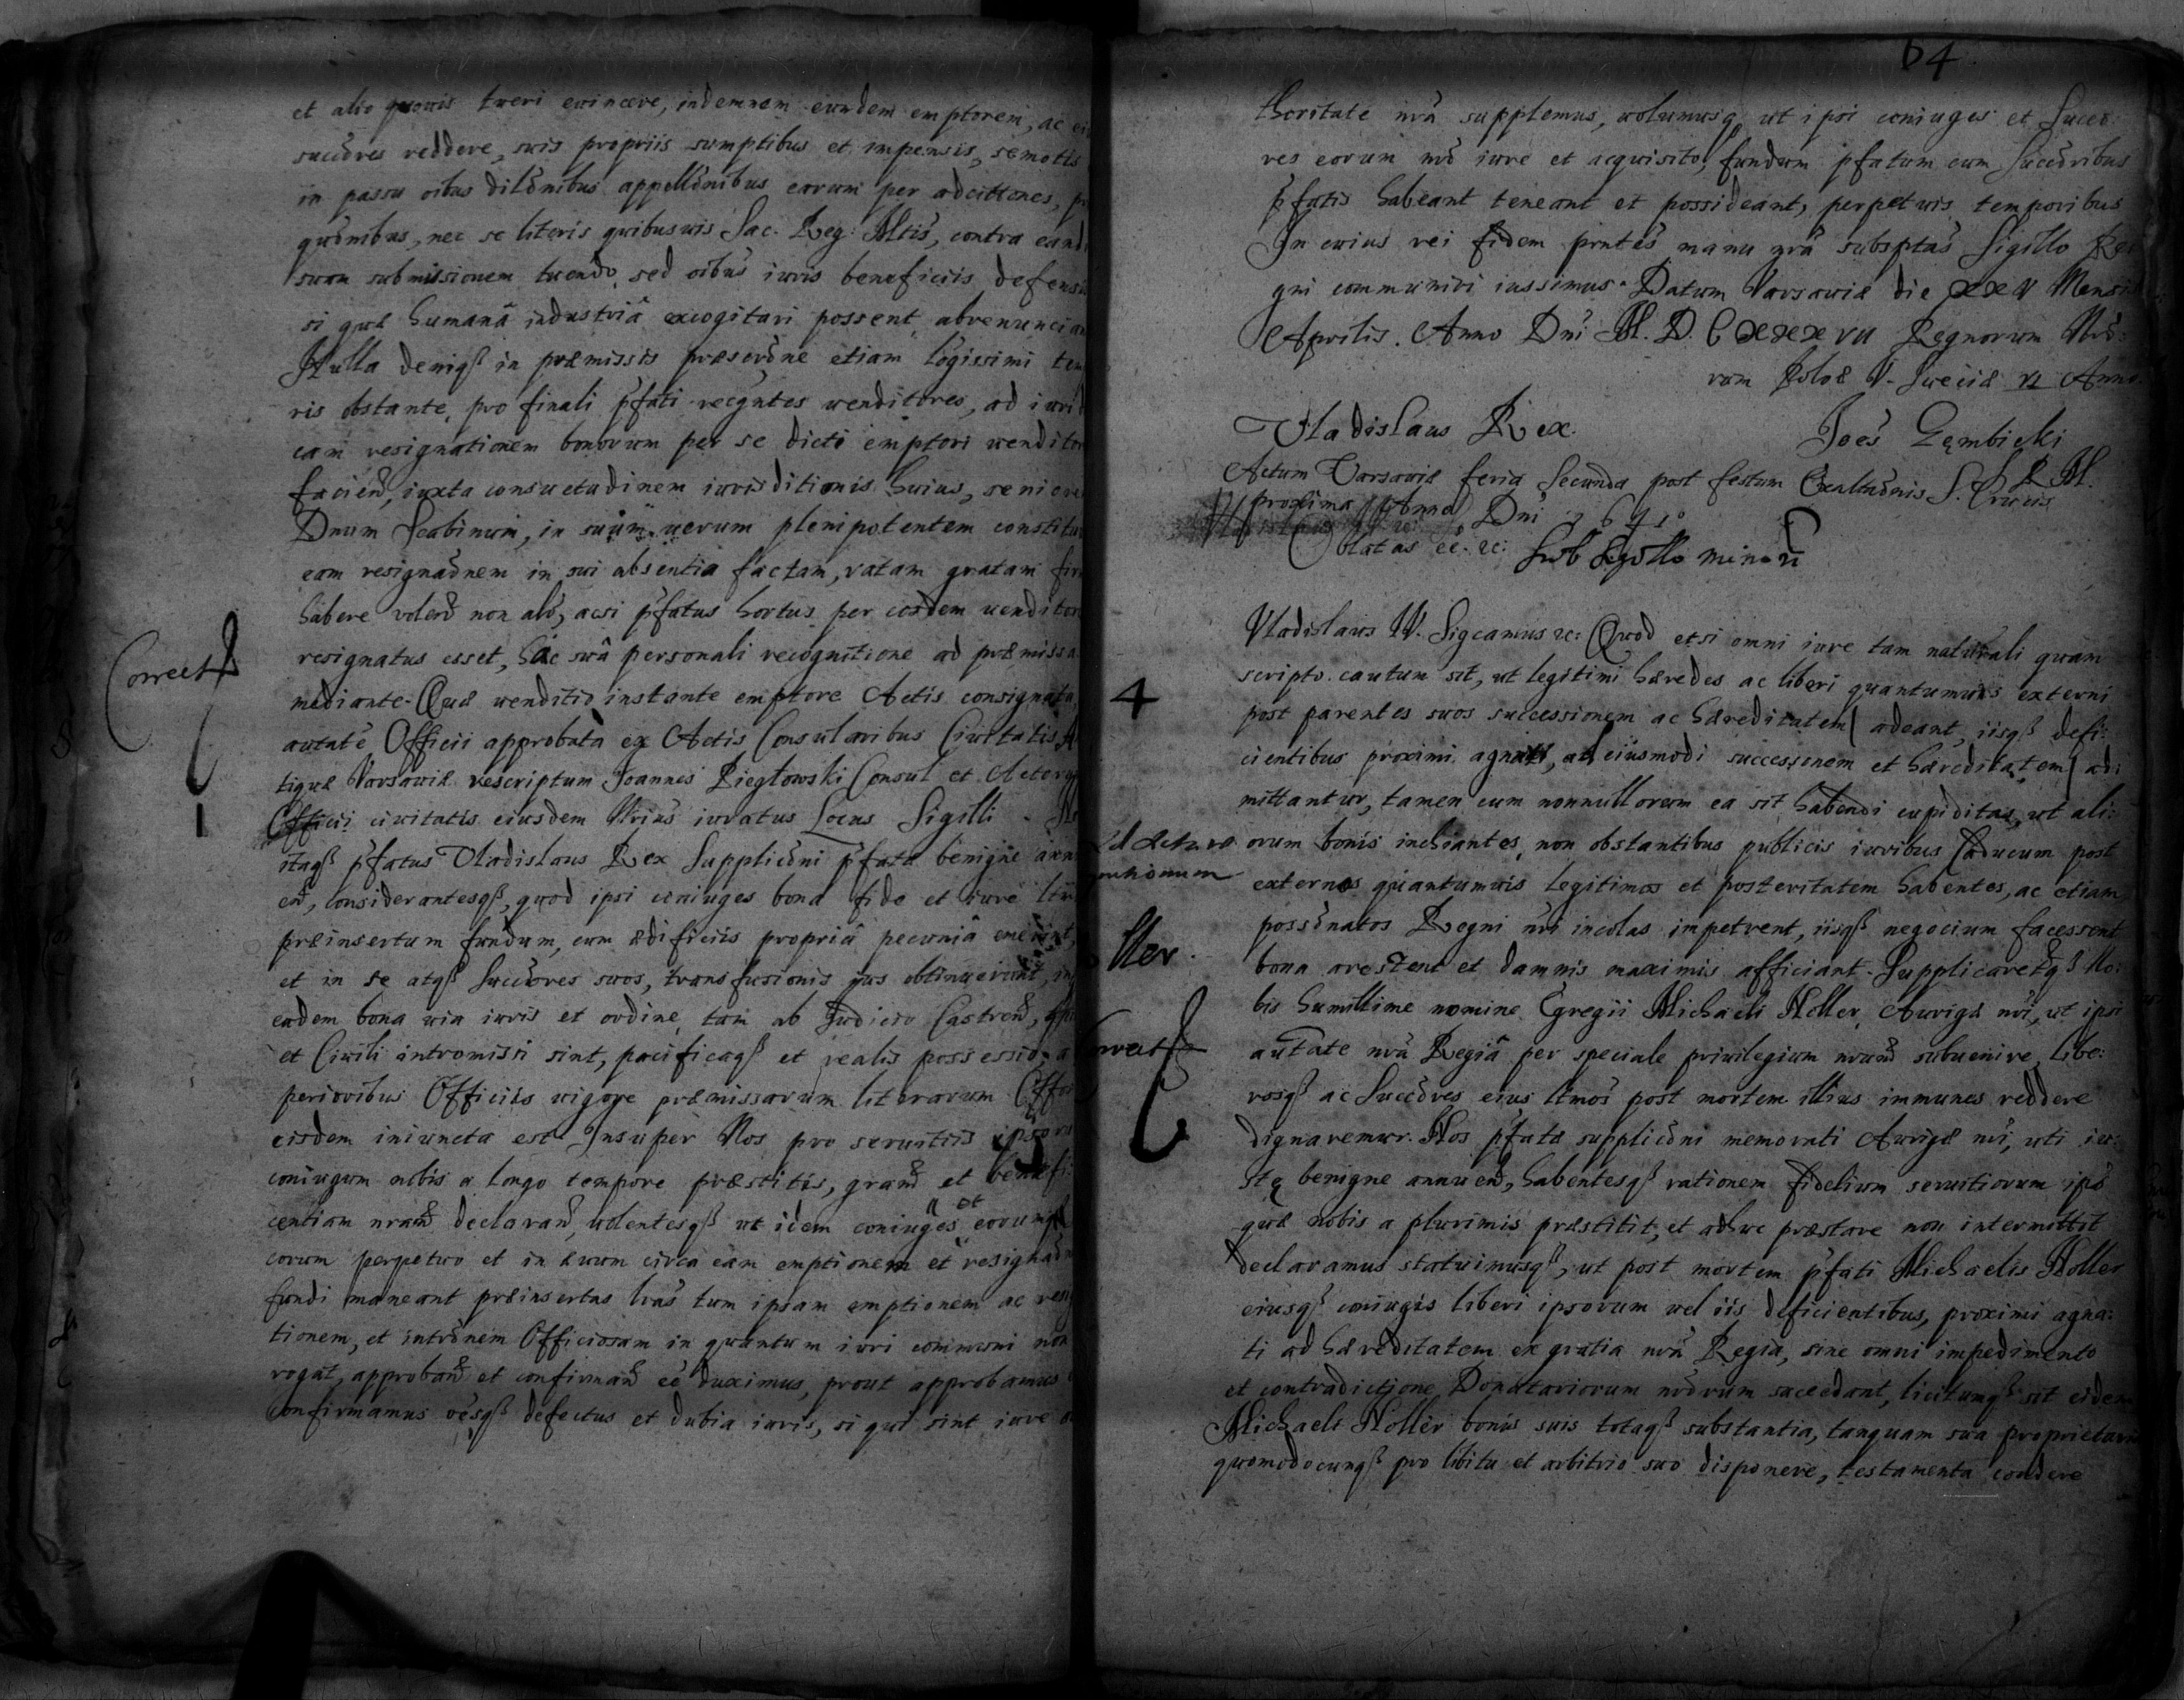 et alio quovis tueri evincere, indemnem eundem emptorem, ac
succōres reddere, suis propriis sumptibus et impensis, semotis
in passu oībus dilōnibus appellōnibus eorum per adcittiones,
quōnibus, nec se literis quibusvis Sac. Reg. Mtis, contra
suam submissionem tuendo, sed oībus iuris beneficiis
si quæ humanâ industriâ excogitari possent
Nulla deniqȝ in præmissis præscrōne etiam lōgissimi
ris obstante, pro finali p̄fati recgntes venditores, ad
cam resignationem bonorum per se dicto emptori
facień, iuxta consuetudinem iurisditionis huius,
Dnum Scabinum, in suūm verum plenipotentem
eam resignaōnem in sui absentia factam, ratam gratam
habere voleń non als, acsi p̄fatus hortus per eosdem
resignatus esset, hâc suâ personali recognitione ad præmissa
mediante. Quæ venditio instante emptore Actis consignata
autate Officii approbata ex Actis Consularibus Civitatis
tiquæ Varsaviæ rescriptum Joannes Rieglowski Consul et
Officii civitatis eiusdem Nrius iuratus Locus Sigilli.
itaqȝ p̄fatus Vladislaus Rex Suppliōni p̄fatæ benigne
eń, considerantesqȝ, quod ipsi coniuges bona fide et iure
præinsertum fundum, cum ædificiis propriâ pecuniâ
et in se atqȝ Succōres suos, transfusionis ius obtinuerint,
eadem bona via iuris et ordine tam ab Iudicio Castreń,
et Civili intromissi sint, pacificaqȝ et realis possessio
perioribus Officiis vigore præmissarum literarum
eisdem iniuncta est. Insuper Nos pro servitiis
coniugum nobis a longo tempore præstitis, grań et
centiam nrām declarań, volentesqȝ ut idem coniuges et
corum perpetuo et in ævum circa eam emptionem et
fundi maneant præinsertas lras tum ipsam emptionem ac
tionem, et intrōnem Officiosam in quantum iuri communi non
rogat, approbań et confirmań eē duximus, prout approbamus
Confirmamus oēsqȝ defectus et dubia iuris, si qui sint iure
Correct
1
64
thoritate nrā supplemus, volumusqȝ ut ipsi coniuges et
res eorum nrō iure et acquisito, fundum p̄fatum cum Succōribus
p̄fatis habeant teneant et possideant, perpetuis temporibus
In cuius rei fidem prntes manu nrā subsptas Sigillo
gni communiri iussimus. Datum Varsaviæ die XXV
Aprilis. Anno Dni M. D. C XXXVII Regnorum
rum Polæ V. Sueciæ VI Anno
Vladislaus Rex.
Joēs Gęmbicki
S R M.
Actum Varsaviæ feria Secunda post festum Exaltaōnis S. Crucis
proxima Anno Dni 1641°
Oblatas &c. &c: Sub Sigillo minori
4
Vladislaus IV. Sigcamus &c: Quod etsi omni iure tam naturali quam
scripto cautum sit, ut legitimi hæredes ac liberi quantumvis externi
post parentes suos successionem ac hæreditatem adeant, iisqȝ defi:
cientibus proximi agnati, ad eiusmodi successionem et hæreditatem ad:
mittantur, tamen cum nonnullorum ea sit habendi cupiditas, ut ali:
orum bonis inchiantes, non obstantibus publicis iuribus Caducum post
externos quantumvis legitimos et posteritatem habentes, ac etiam
possōnatos Regni nri incolas impetrent, iisqȝ negocium facessent
bona arestent et damnis maximis afficiant. Supplicaretqȝ No:
bis humillime nomine Egregii Michaeli Noller, Aurigæ nri, ut ipsi
autate nrā Regiâ per speciale privilegium nrum subvenire, libe:
rosqȝ ac Succōres eius ltmos post mortem illius immunes reddere
dignaremur. Nos p̄fatæ suppliōni memorati Aurigæ nri, uti iu:
stę benigne annueń, habentesqȝ rationem fidelium servitiorum
quæ nobis a plurimis præstitit, et adhuc præstare non intermittit
declaramus statuimusqȝ, ut post mortem p̄fati Michaelis Noller
eiusqȝ coniugis liberi ipsorum vel iis deficientibus, proximi agna:
ti ad hæreditatem ex gratia nrā Regia, sine omni impedimento
et contradictione Donatariorum nrōrum succedant, licitumqȝ sit eidem
Michaeli Noller bonis suis totaqȝ substantia, tanquam sua
quomodocunqȝ pro libitu et arbitrio suo disponere, testamenta condere